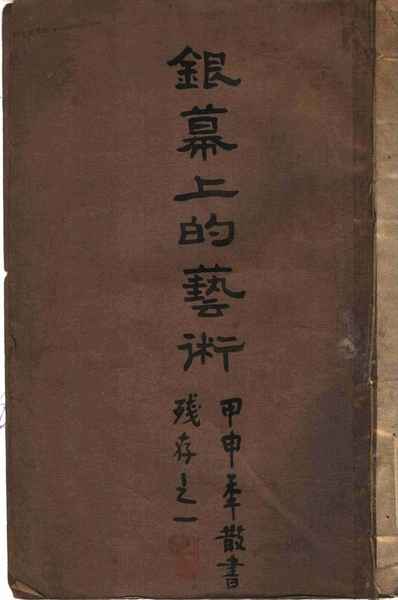 銀幕上的藝術
甲申年散書
残存之一